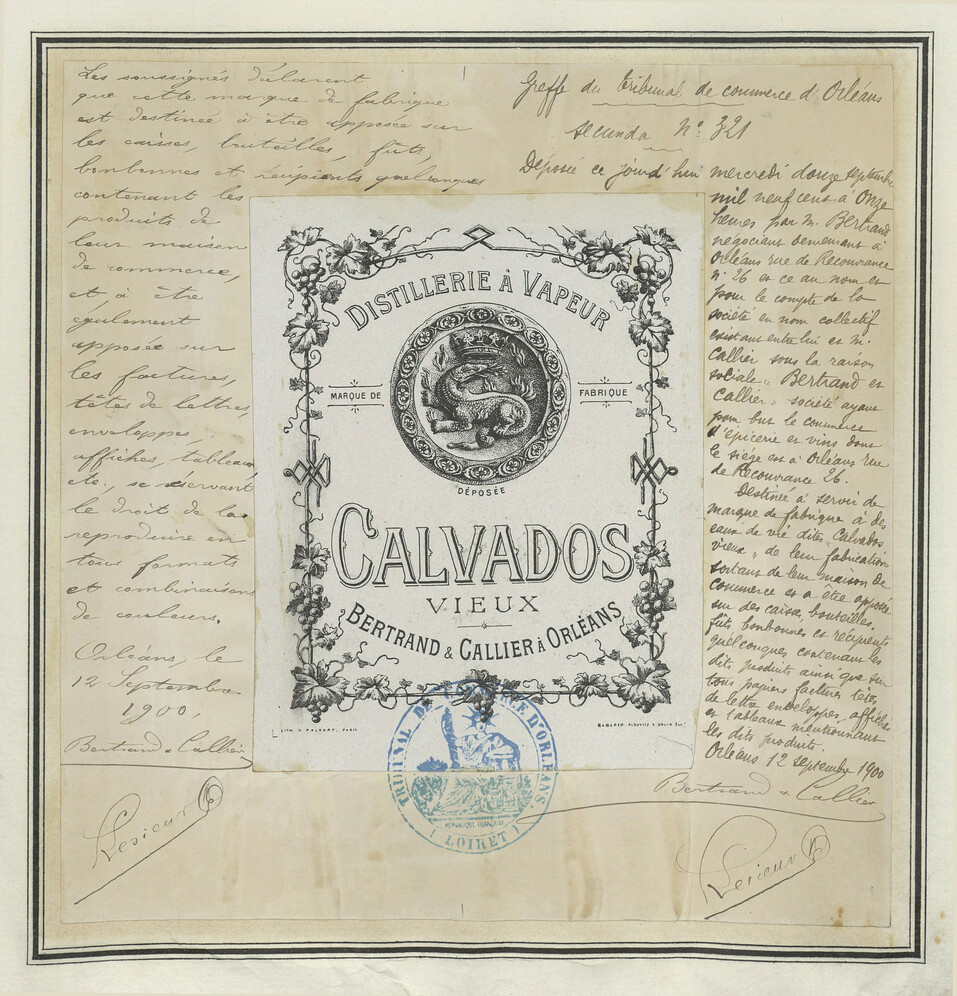 Les soussignés déclarent
que cette marque de fabrique
est destinée à être apposée sur
les caisses, bouteilles, fûts,
bonbonnes et récipients quelconques
contenant les
produits de
leur maison
de commerce,
et, à être
également
apposée sur
les factures,
têtes de lettres,
enveloppes,
affiches, tableaux
etc., se réservant
le droit de la
reproduire en
tous formats
et combinaisons
de couleurs.
Orléans, le
12 Septembre
1900,
Bertrand & Callier
Lesieur
Greffe du tribunal de commerce d'Orléans
secunda N° 321
Déposée ce jourd'hui mercredi douze septembre
mil neuf cent à Onze
heures par M. Bertrand
négociant demeurant à
Orléans rue de Recouvrance
N° 26 et ce au nom et
pour le compte de la
société en nom collectif
existant entre lui et M.
Callier sous la raison
sociale „ Bertrand et
Callier „ société ayant
pour but le commerce
d'épicerie et vins dont
le siège est à Orléans rue
de Recouvrance 26.
Destinée à servir de
marque de fabrique à des
eaux de vie dites „ Calvados
vieux „ de leur fabrication
sortant de leur maison de
commerce et a être apposée
sur des caisses, bouteilles.
fûts bonbonnes et récipients
quelconques contenant les
dits produits ainsi que sur
tous papiers factures têtes
de lettre enveloppes, affiches
et tableaux mentionnant
les dits produits.
Orléans 12 septembre 1900
Bertrand & Callier
Lesieur
DISTILLERIE À VAPEUR
MARQUE DE FABRIQUE
DÉPOSÉE
CALVADOS
VIEUX
BERTRAND & CALLIER À ORLÉANS
LITH. V. PALYART, PARIS
TRIBUNAL DE COMMERCE D'ORLÉANS.
RÉPUBLIQUE FRANÇAISE
( LOIRET )